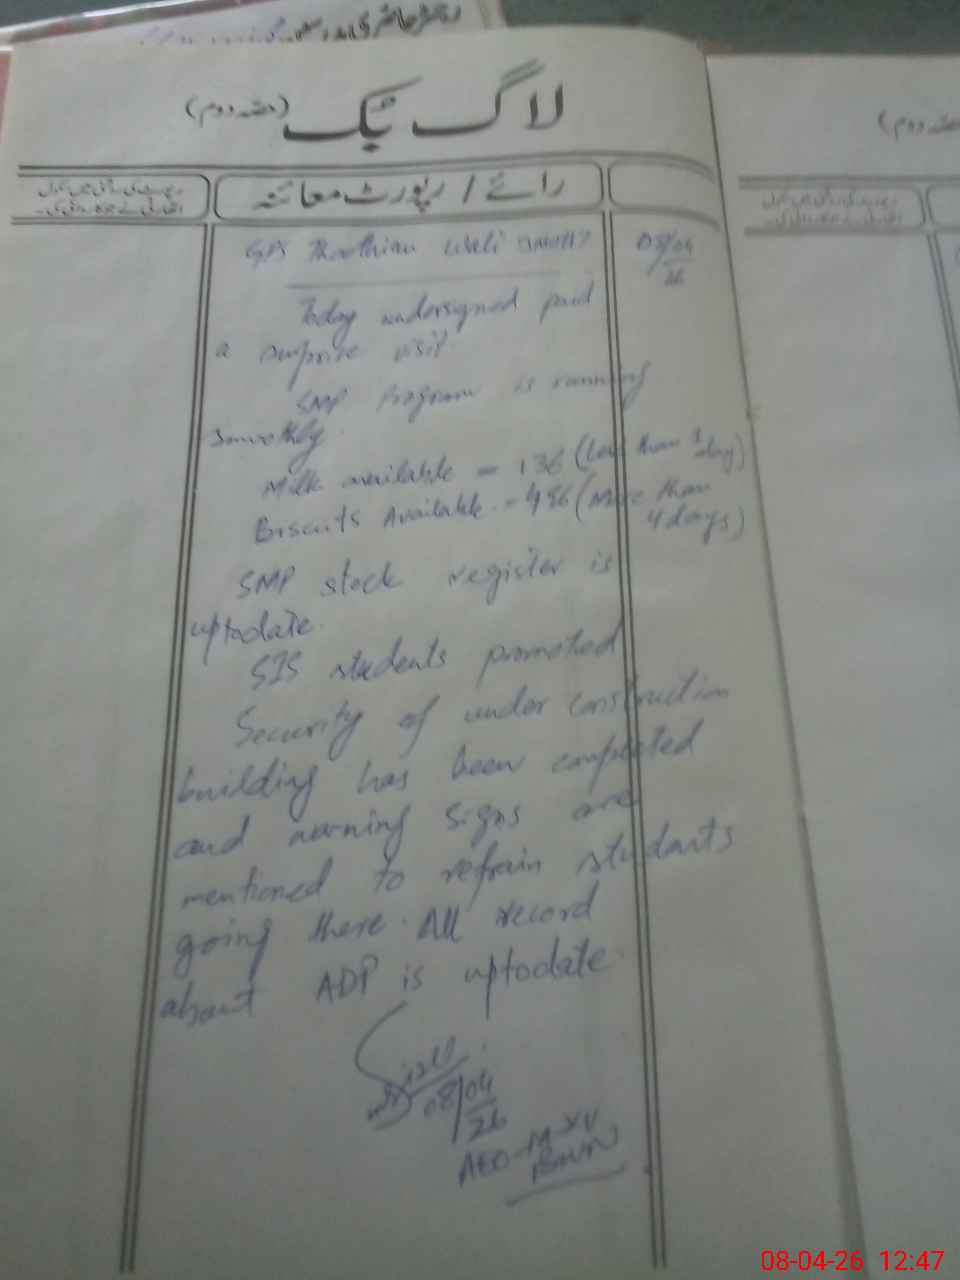 لاگ بک (حصہ دوم)
رائے / رپورٹ معائنہ
GPS Thathian Wali
08/04
26
Today undersigned paid
a surprise visit
SMP Program is running
smoothly.
Milk available = 136 (Less than 1 day)
Biscuits Available = 496 (More than
4 days)
SMP stock register is
uptodate.
SIS students promoted
Security of under construction
building has been completed
and warning signs are
mentioned to refrain students
going there. All record
about ADP is uptodate.
08/04
26
AEO-M XV
BWN
08-04-26 12:47